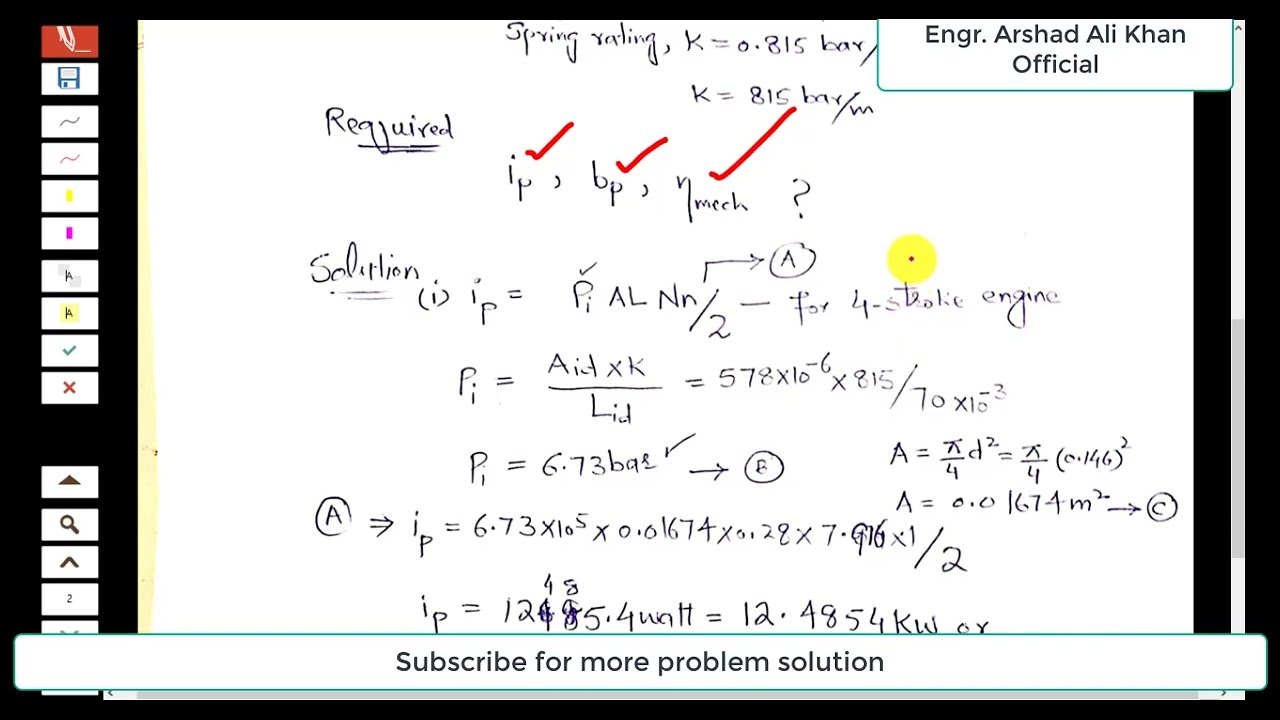 Spring rating, K = 0.815 bar/
Engr. Arshad Ali Khan
Official
K = 815 bar/m
Required
ip, bp, ηmech ?
Solution
(i) ip = Pi AL Nn/2 — for 4-stroke engine
A
Pi = Aid×K / Lid = 578×10⁻⁶ × 815/70×10⁻³
Pi = 6.73 bar → B
A = π/4 d² = π/4 (0.146)²
A = 0.01674 m² → C
A ⇒ ip = 6.73×10⁵ × 0.01674 × 0.28 × 7.916 ×1/2
ip = 12485.4 watt = 12.4854 KW or
Subscribe for more problem solution
2